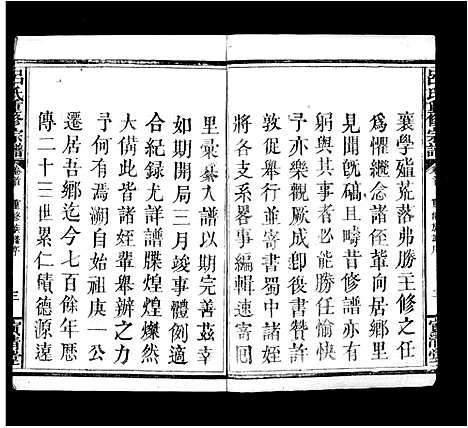 襄學殖荒落弗勝主修之任
為懼繼念諸侄輩向居鄉里
見聞旣碻且疇昔修橋修祠
躬與其事者必能勝任愉快
予亦樂觀厥成復書贊許並
敦促舉行並寄書國內外
將各支系畧事編輯速寄回
里彙纂入譜以期完善茲幸
如期開局三月竣事體例適
合紀錄尤詳譜牒煌煌燦然
大備此皆諸姪輩舉辦之力
予何有焉溯自始祖庚一公
遷居吾鄉迄今七百餘年歷
傳二十三世累仁積德源遠
呂氏重修宗譜
卷首
重修族譜序
三